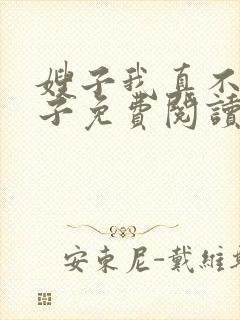 嫂子我真不
子免費閱讀
安東尼-戴維斯